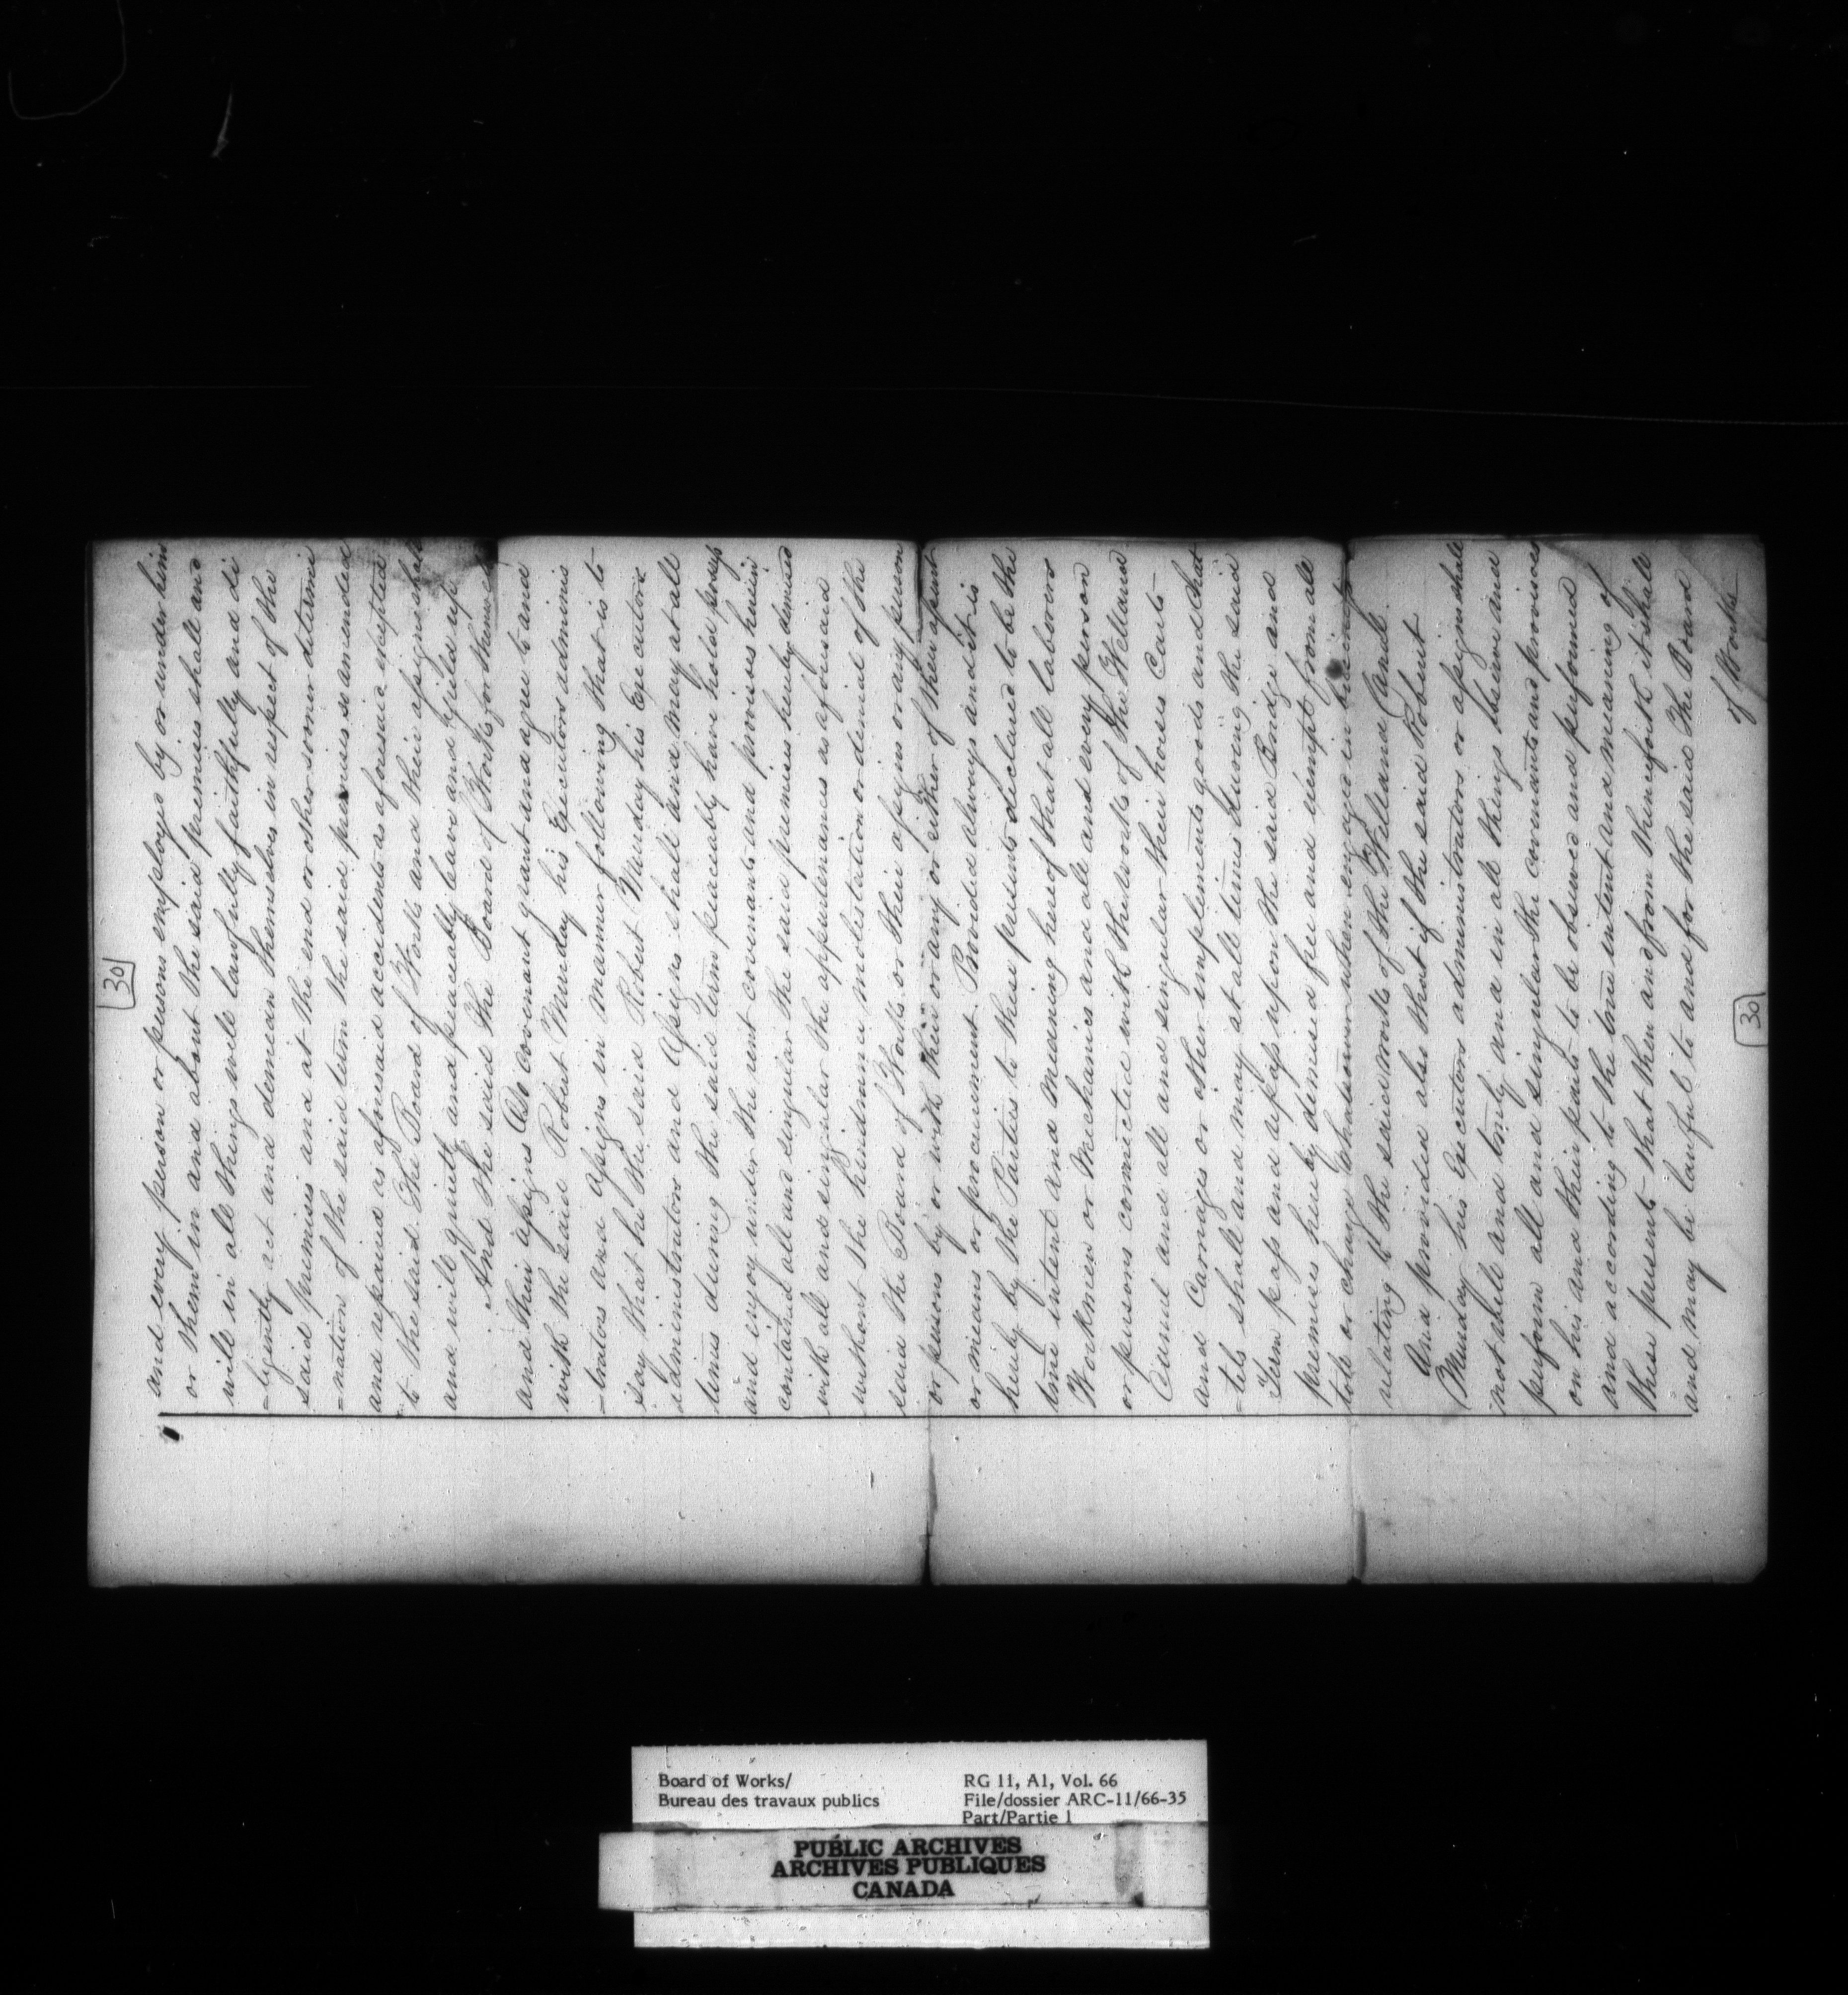 30
and every person or persons employed by or under him
or them in and about the said premises shall and
will in all things will lawfully faithfully and di
-ligently act and demean themselves in respect of the
said premises and at the end or other sooner determi
-nation of the said term the said premises so amended
and repaired as aforesaid accidents as aforesaid excepted
to the said The Board of Works and their assigns shall
and will quietly and peaceably leave and yield up
And the said The Board of Works for themselves
and their assigns Do covenant grant and agree to and
with the said Robert Munday his Executors adminis
-trators and assigns in manner following that is to
say that he the said Robert Munday his Executors
administrators and assigns shall and may at all
times during the said term peaceably have hold possess
and enjoy under the rent covenants and provisoes herein
contained all and singular the said premises hereby demised
with all and singular the appurtenances as aforesaid
without the hindrance molestation or denial of the
said the Board of Works or their assigns or any person
or persons by or with their or any or either of their assent
or means or procurement. Provided always and it is
hereby by the Parties to these presents declared to be the
true intent and meaning hereof that all laborers
Workmen or Mechanics and all and every person
or persons connected with the Works of the Welland
Canal and all and singular their horses Carts
and Carriages or other implements goods and chat
-tels shall and may at all times during the said
Term pass and repass upon the said Bridge and
premises hereby demised free and exempt from all
tole or charge whatsoever when engaged in business
relating to the said works of the Welland Canal.
And provided also that if the said Robert
Munday his Executors administrators or assigns shall
not well and truly and in all things observe and
perform all and singular the covenants and provisoes
on his and their parts to be observed and performed
and according to the true intent and meaning of
these presents that then and from thenceforth it shall
and may be lawful to and for the said The Board
of Works
30
Board of Works/
Bureau des travaux publics
RG 11, A1, Vol. 66
File/dossier ARC-11/66-35
Part/Partie 1
PUBLIC ARCHIVES
ARCHIVES PUBLIQUES
CANADA